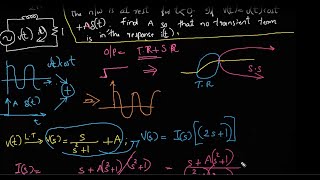 The n/w is at rest for t<0. If v(t)=u(t)cost
+Aδ(t), find A so, that no transient term
is in the response i(t).
v(t)
1
O/P = T.R + S.R
u(t)cost
T.R
S.S
v(t) L.T V(s) = s/(s²+1) + A, V(s) = I(s)[(2s+1)]
I(s) = s+A(s²+1)/(s²+1) = s+A(s²+1)